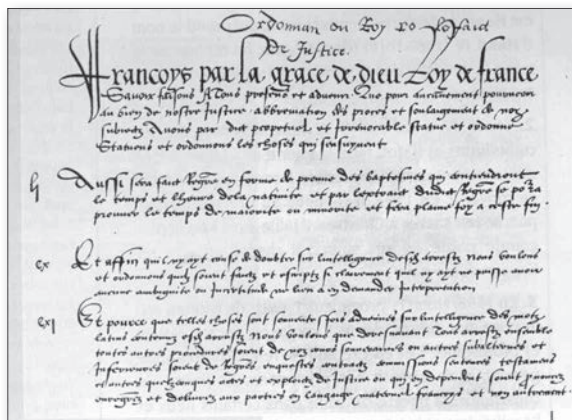 Ordonnan du Roy
De Justice.
Francoys par la grace de dieu Roy de france
Scavoir faisons A tous presens et advenir Que pour aucunement pourveoir
au bien de nostre Justice abbreviation des proces et soulaigement de noz
subiectz Avons par edict perpetuel et irrevocable statue et ordonne
Statuons et ordonnons les choses qui sensuyvent
lj Aussi sera faict Regre en forme de preuve des baptesmes qui contiendront
le temps et lheure de la nativite et par lextraict dudict Regre se pora
prouver le temps de maiorite ou minorite et fera plaine foy a ceste fin.
cx Et affin quil ny ayt cause de doubter sur lintelligence desdictz arrestz Nous voulons
et ordonnons quilz soient faictz et escriptz si clairement quil ny ayt ne puisse avoir
aucune ambiguite ou incertitude ne lieu a en demander Interpretation
cxi Et pource que telles choses sont souventesfois advenues sur lintelligence des motz
latins contenuz esdictz arrestz Nous voulons que doresnavant Tous arrestz ensemble
toutes autres procedures soient de noz cours souveraines ou autres subalternes et
Inferieures soient de Regres enquestes contractz commissions sentences testamens
et autres quelzconques actes et exploictz de Justice ou qui en dependent soient prononcez
enregrez et delivrez aux parties en langaige maternel francoys et non autrement